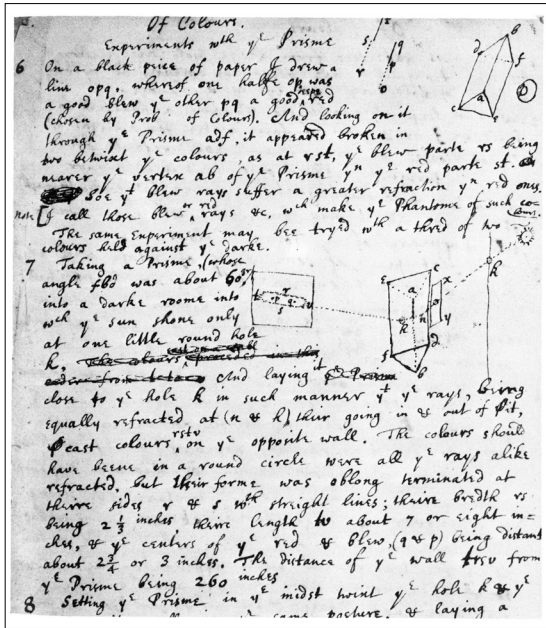 Of Colours.
Experiments wth ye Prisme
6 On a black peice of paper I drew a
line opq, whereof one halfe op was
a good blew ye other pq a good deepe red
(chosen by Prob of Colours). And looking on it
through ye Prisme adf, it appeared broken in
two betwixt ye colours, as at rst, ye blew parte rs being
nearer ye vertex ab of ye Prisme yn ye red parte st.
Soe yt blew rays suffer a greater refraction yn red ones.
Note [I call those blew or red rays &c, wch make ye Phantome of such colours.
The same Experiment may bee tryed wth a thred of two
colours held against ye darke.
7 Taking a Prisme, (whose
angle fbd was about 60gr)
into a darke roome into
wch ye sun shone only
at one little round hole
k, And laying it
close to ye hole k in such manner yt ye rays, being
equally refracted at (n & h) their going in & out of it,
cast colours rstv on ye opposite wall. The colours should
have beene in a round circle were all ye rays alike
refracted, but their forme was oblong terminated at
theire sides r & s wth streight lines; theire bredth rs
being 2 1/3 inches, theire length tv about 7 or eight in-
ches, & ye centers of ye red & blew, (q & p) being distant
about 2 3/4 or 3 inches. The distance of ye wall trsv from
ye Prisme being 260 inches
8 Setting ye Prisme in ye midst twixt ye hole k & ye
same posture, & laying a